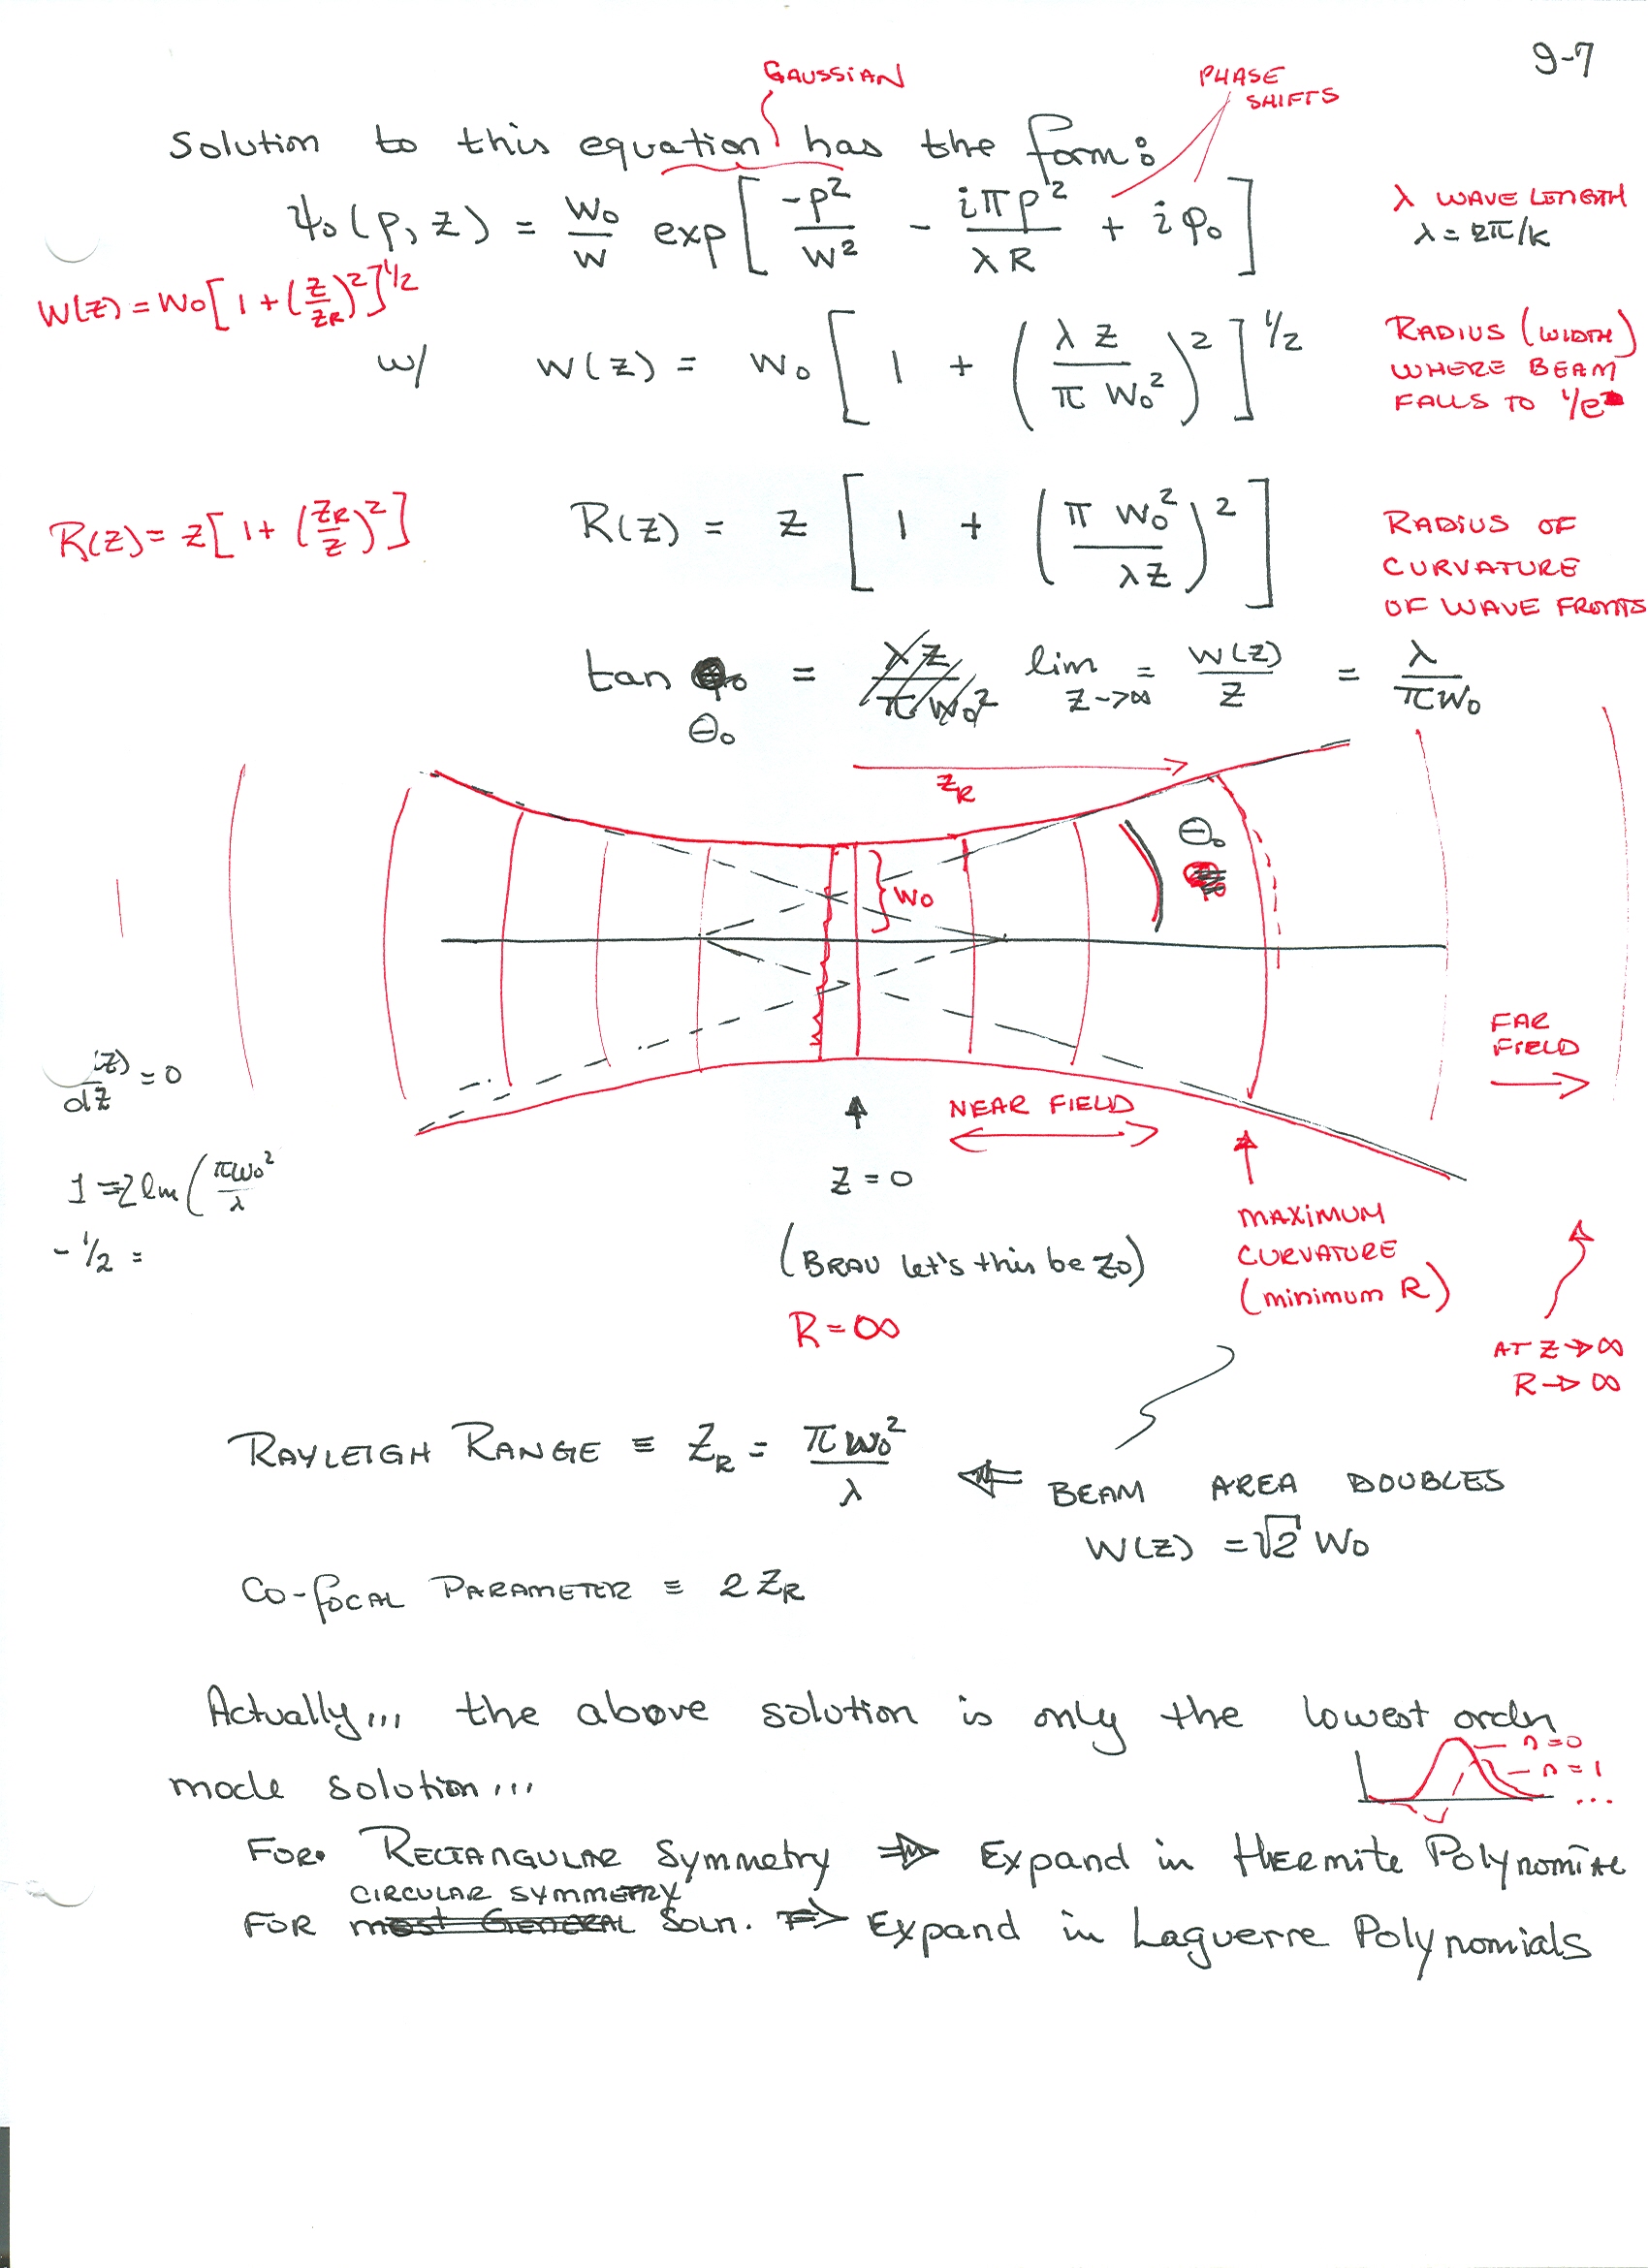 9-7
GAUSSIAN
PHASE SHIFTS
Solution to this equation has the form:
ψ₀(ρ, z) = w₀/w exp[ -ρ²/w² - iπρ²/λR + iφ₀ ]
λ WAVE LENGTH
λ = 2π/k
W(z) = W₀[1 + (z/z_R)²]^1/2
w/ W(z) = W₀ [ 1 + (λz/πW₀²)² ]^1/2
RADIUS (WIDTH)
WHERE BEAM
FALLS TO 1/e
R(z) = z[1 + (z_R/z)²]
R(z) = z [ 1 + (πW₀²/λz)² ]
RADIUS OF
CURVATURE
OF WAVE FRONTS
tan θ₀ = lim z->∞ = W(z)/z = λ/πW₀
z_R
θ₀
W₀
FAR
FIELD
NEAR FIELD
z)/dz = 0
1 = 2 lm (πW₀²/λ
- 1/2 =
z = 0
(BRAU let's this be z₀)
R = ∞
MAXIMUM
CURVATURE
(minimum R)
AT z → ∞
R → ∞
RAYLEIGH RANGE ≡ z_R = πW₀²/λ
⇐ BEAM AREA DOUBLES
W(z) = √2 W₀
CO-focAL PARAMETER ≡ 2 z_R
Actually,,, the above solution is only the lowest order
n = 0
n = 1
...
mode solution,,,
FOR RECTANGULAR Symmetry ⇒ Expand in HERmite Polynomial
CIRCULAR SYMMETRY
FOR most GENERAL Soln. ⇒ Expand in Laguerre Polynomials